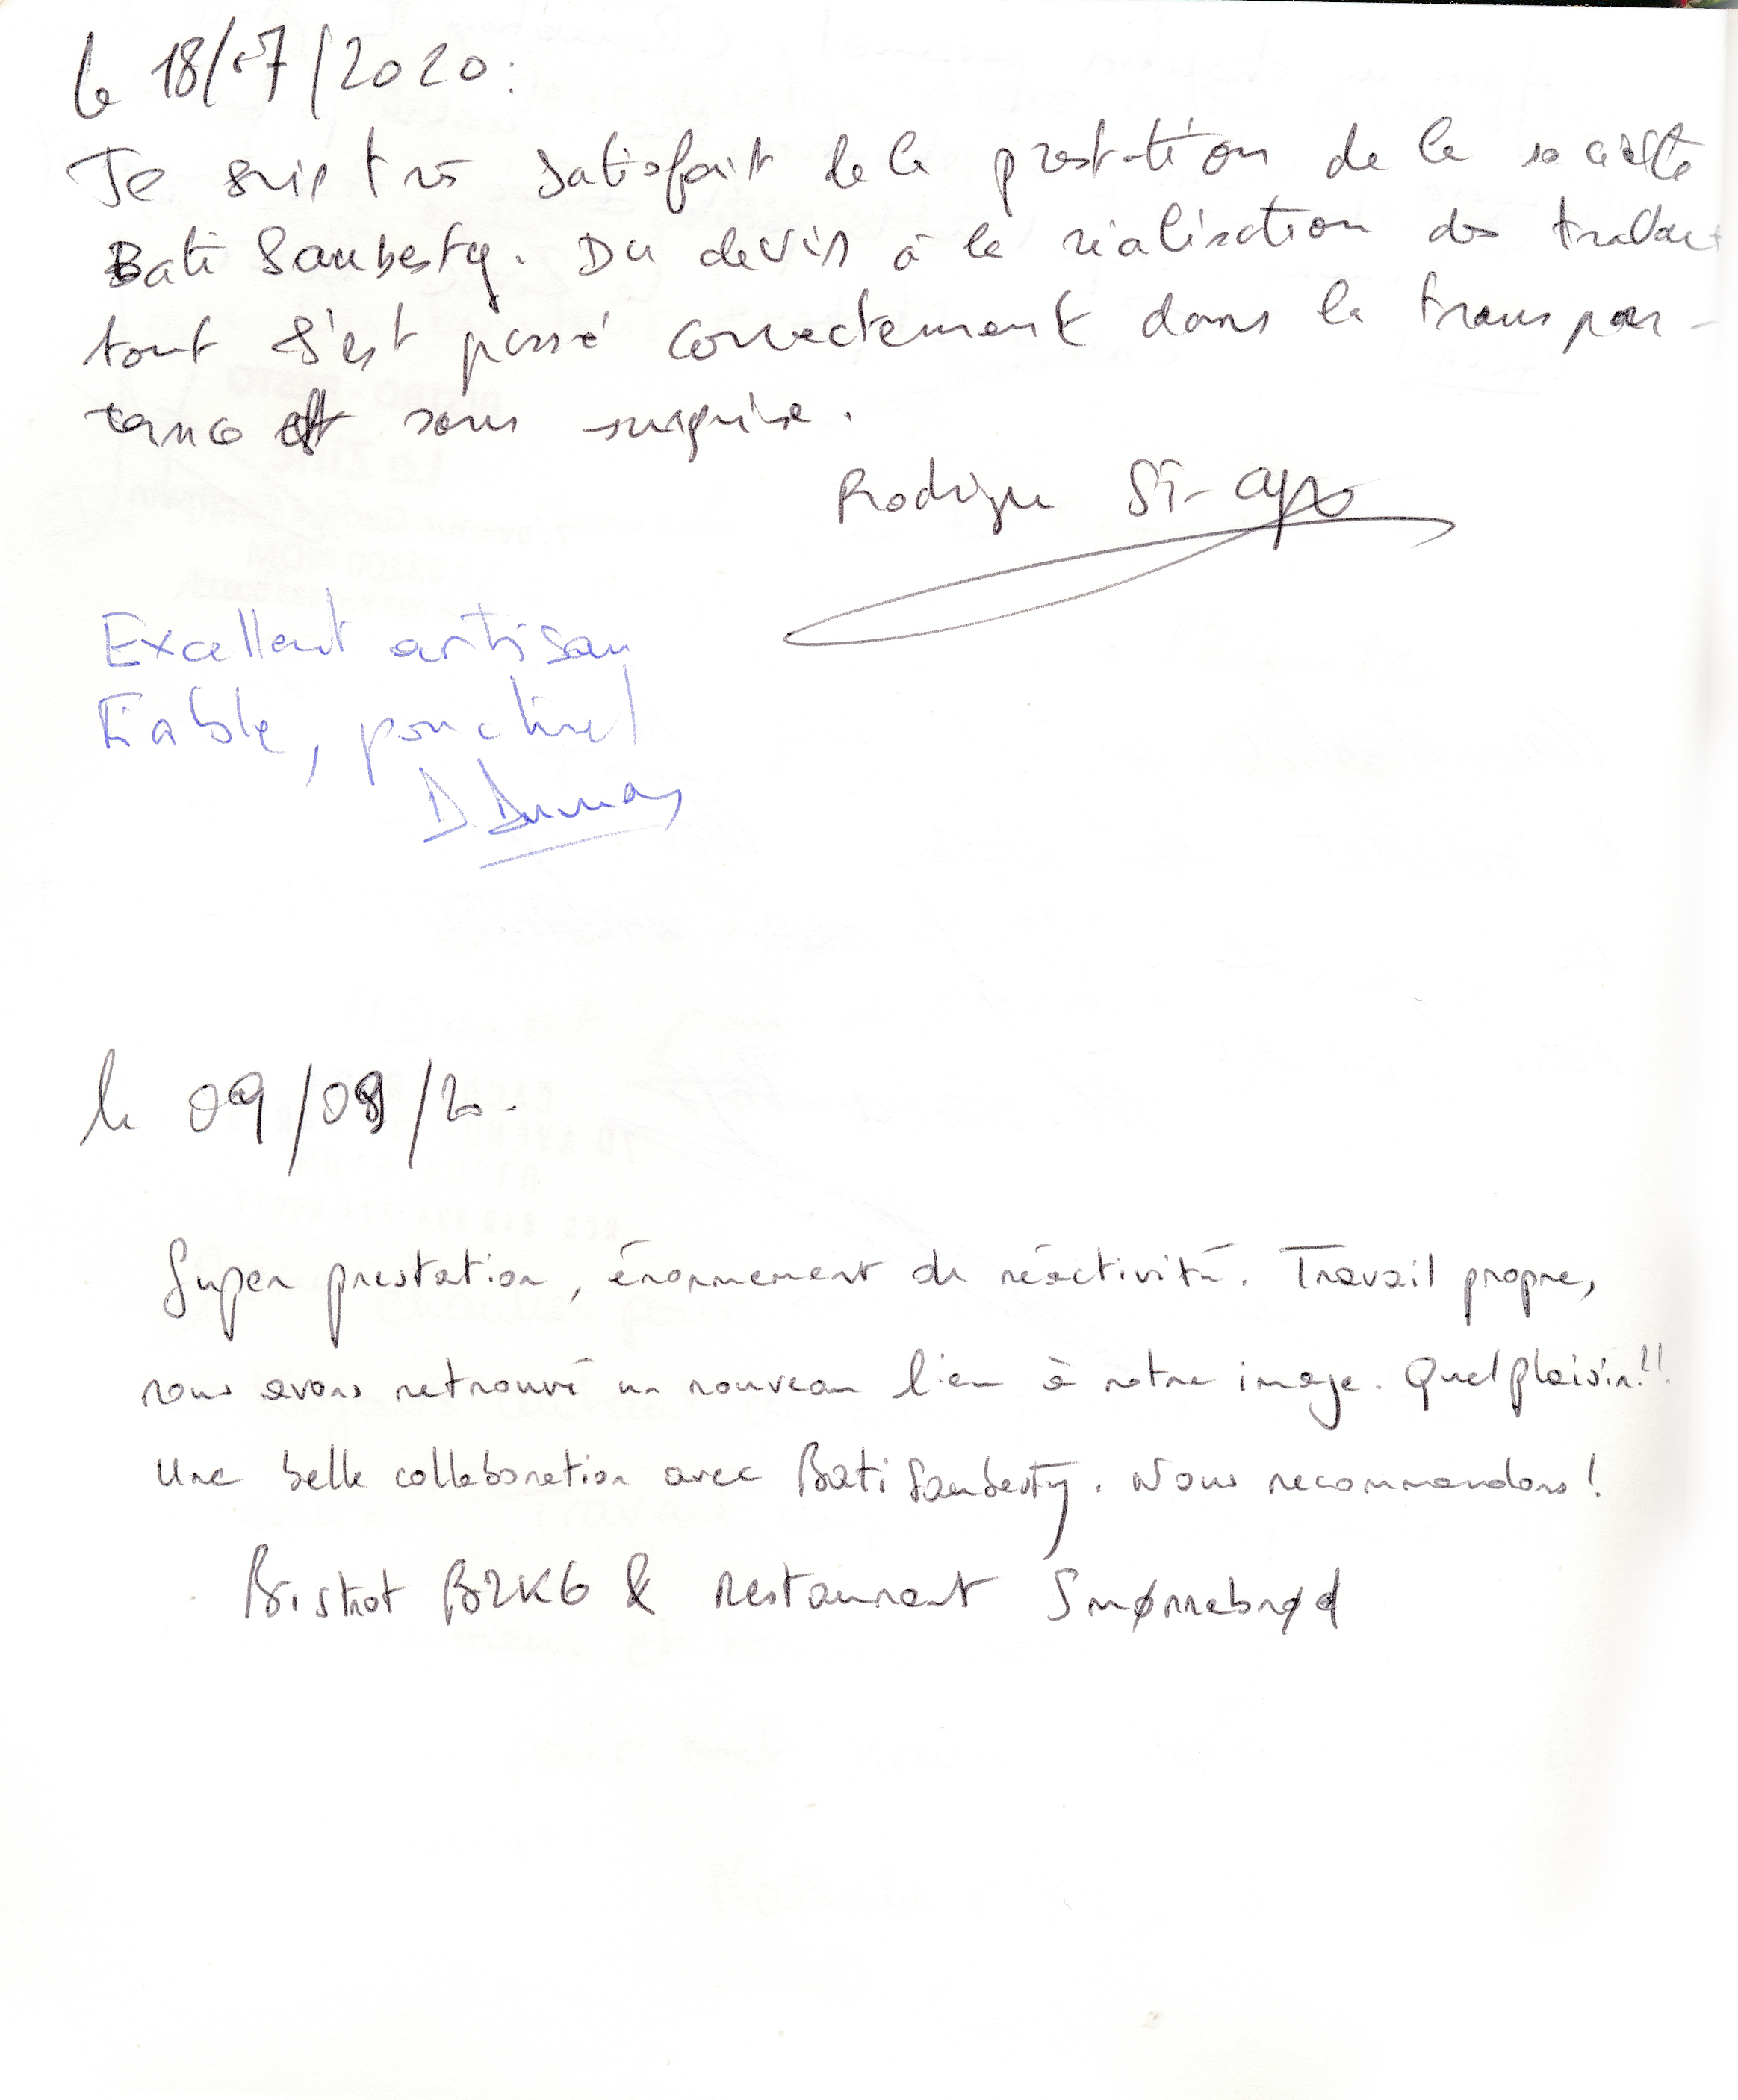 le 18/07/2020:
Je suis très satisfait de la prestation de la société
Bati Saubesty. Du devis à la réalisation des travaux
tout s'est passé correctement dans la transpar-
tance et sans surprise.
Rodrigue
Excellent artisan
Fiable, ponctuel
D. Dumas
le 09/09/20.
Super prestation, énormement de réactivité. Travail propre,
nous avons retrouvé un nouveau lien à notre image. Quel plaisir!!
Une belle collaboration avec Bati Saubesty. Nous recommandons!
Bistrot B2K6 & Restaurant Smørrebrød